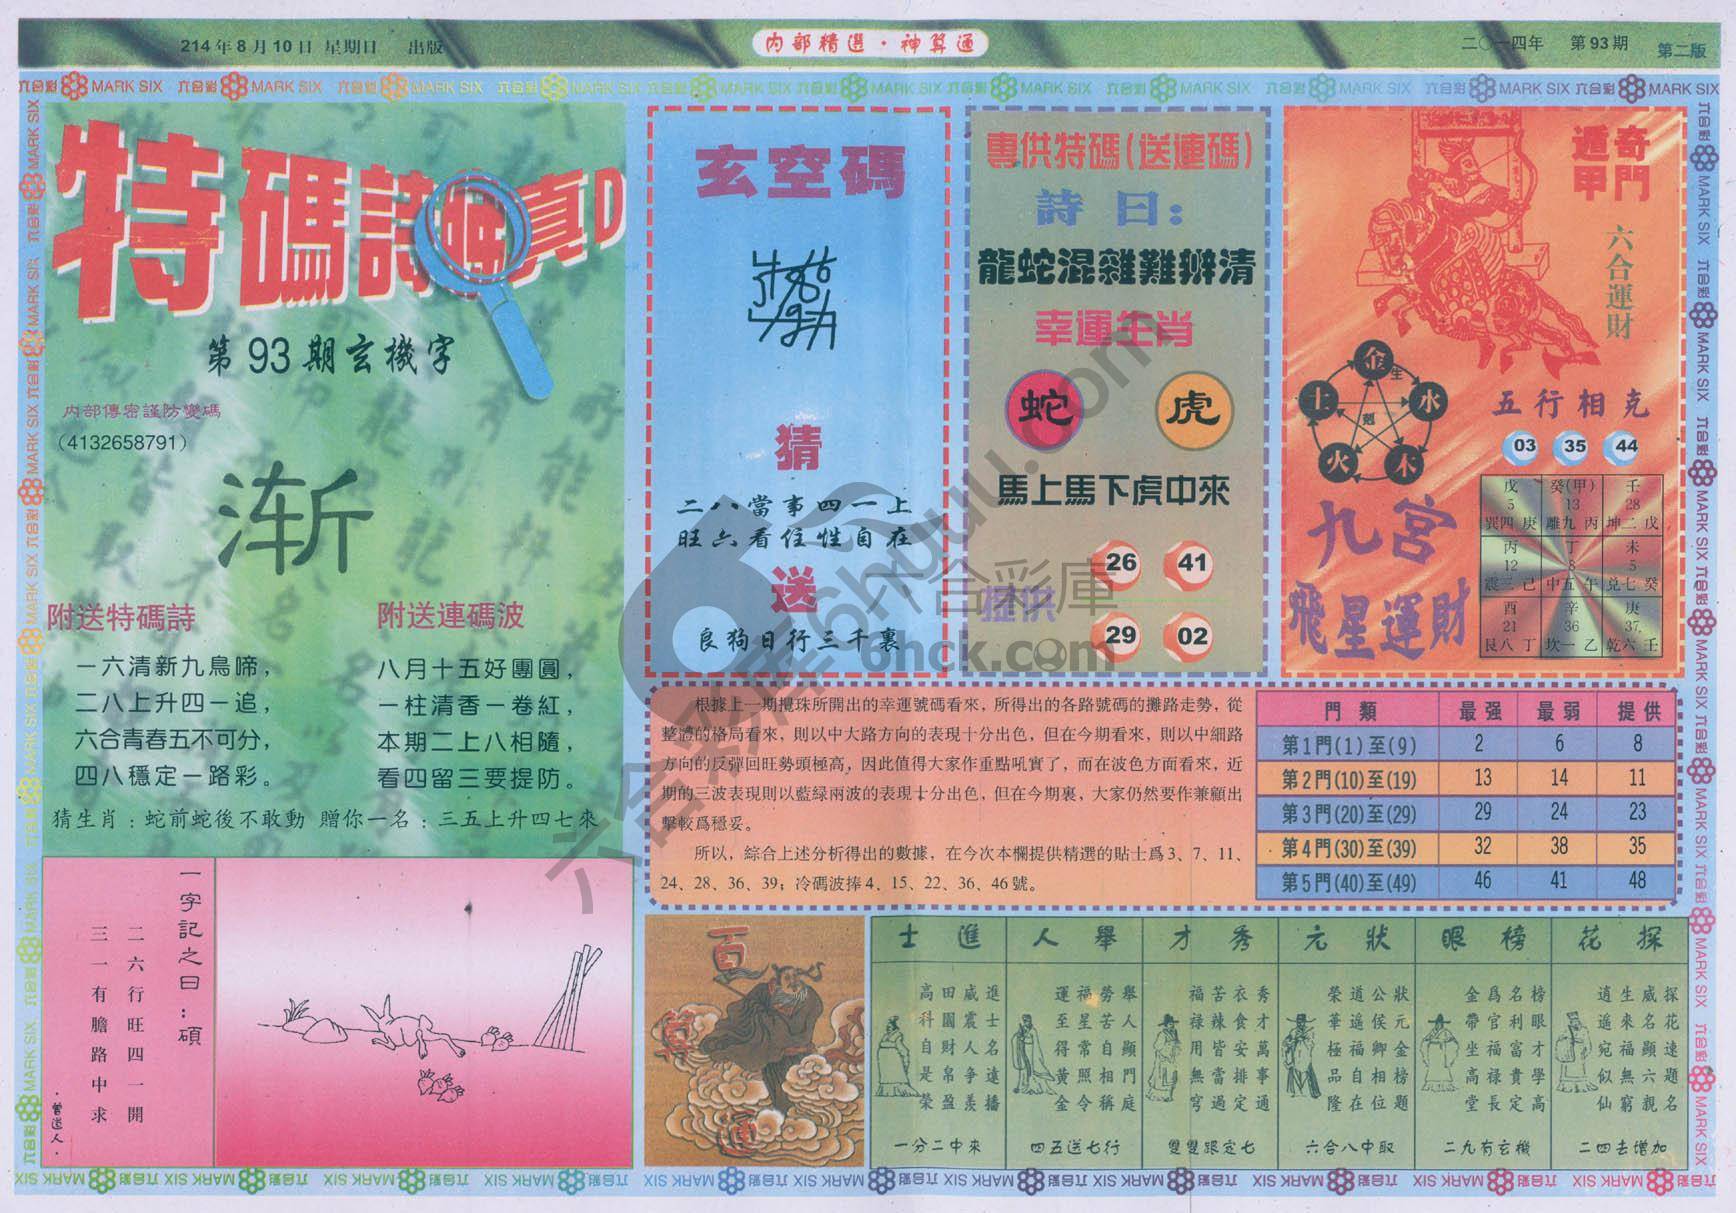 214年8月10日 星期日 出版
内部精選·神算通
二〇一四年 第93期 第二版
六合彩 MARK SIX
特碼詩
真
第93期玄機字
内部傳密謹防變碼
(4132658791)
渐
附送特碼詩
一六清新九鳥啼，
二八上升四一追，
六合青春五不可分，
四八穩定一路彩。
附送連碼波
八月十五好團圓，
一柱清香一卷紅，
本期二上八相隨，
看四留三要提防。
猜生肖：蛇前蛇後不敢動 贈你一名：三五上升四七來
玄空碼
猜
二八當事四一上
旺六看住性自在
送
良狗日行三千裏
專供特碼(送連碼)
詩曰：
龍蛇混雜難辦清
幸運生肖
蛇 虎
馬上馬下虎中來
提供
26 41
29 02
奇門遁甲
六合運財
金 生 水 木 火 土 剋
五行相克
03 35 44
九宮
飛星運財
戊 癸(甲) 壬
5 13 28
巽四 庚 離九 丙 坤二 戊
丙 丁 未
12 8 5
震三 己 中五 午 兌七 癸
酉 辛 庚
21 36 37
艮八 丁 坎一 乙 乾六 壬
根據上一期攪珠所開出的幸運號碼看來，所得出的各路號碼的攤路走勢，從
整體的格局看來，則以中大路方向的表現十分出色，但在今期看來，則以中細路
方向的反彈回旺勢頭極高，因此值得大家作重點吼實了，而在波色方面看來，近
期的三波表現則以藍緑兩波的表現十分出色，但在今期裏，大家仍然要作兼顧出
擊較爲穩妥。
所以，綜合上述分析得出的數據，在今次本欄提供精選的貼士爲3、7、11、
24、28、36、39；冷碼波捧4、15、22、36、46號。
門類 最强 最弱 提供
第1門(1)至(9) 2 6 8
第2門(10)至(19) 13 14 11
第3門(20)至(29) 29 24 23
第4門(30)至(39) 32 38 35
第5門(40)至(49) 46 41 48
一字記之曰：碩
二六行旺四一開
三一有膽路中求
·曾道人·
百萬通
探花
探花達題名
威名顯六親
生來福無窮
逍遥宛似仙
二四去增加
榜眼
榜眼才學高
名利富貴定
爲官福禄長
金帶坐高堂
二九有玄機
狀元
狀元金榜題
公侯卿相位
道遥福自在
榮華極品隆
六合八中取
秀才
秀才萬事通
衣食安排定
苦辣皆當過
福禄用無窮
雙雙跟定七
舉人
舉人顯門庭
勞苦自相稱
福星常照令
運至得黄金
四五送七行
進士
進士名遠播
威震人争羨
田園財帛盈
高科自是榮
一分二中來
六合彩庫6hguu.com
六合彩庫
6hck.com